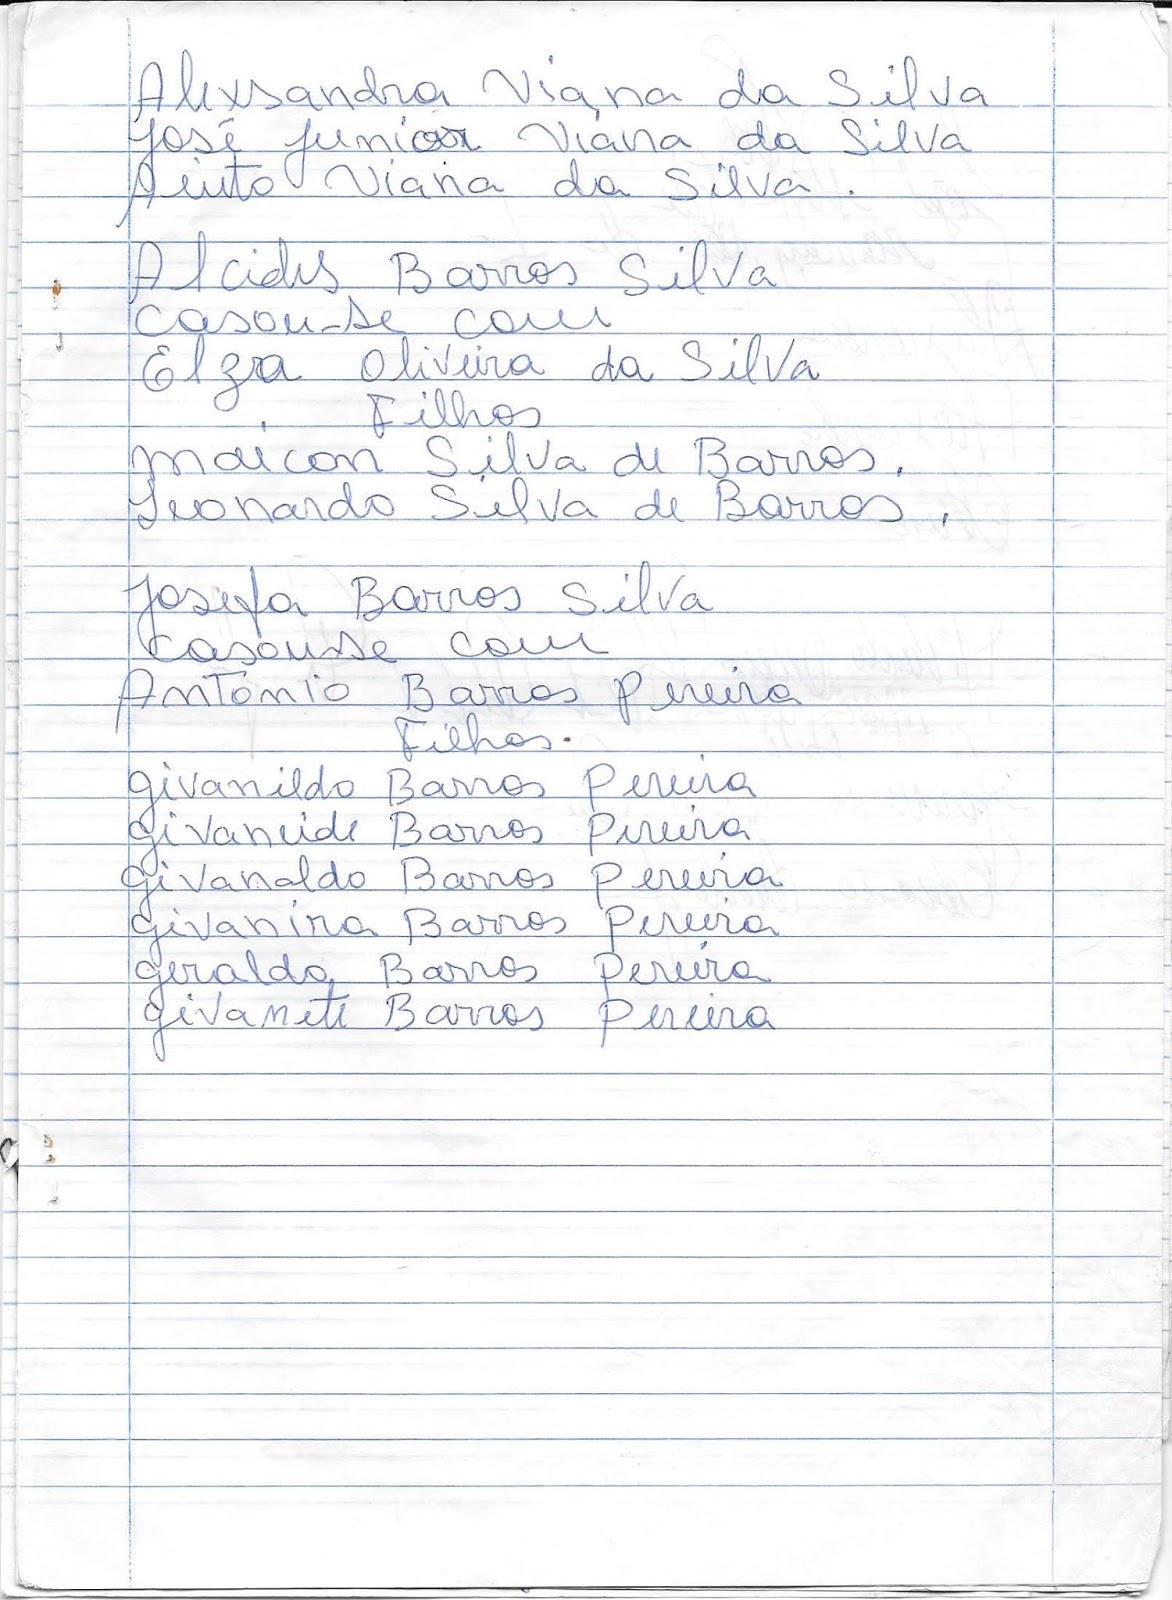 Alexsandra Viana da Silva
José Junior Viana da Silva
Viana da Silva.
Alcides Barros Silva
casou-se com
Elza Oliveira da Silva
Filhos
Maicon Silva de Barros.
Leonardo Silva de Barros.
Josefa Barros Silva
casou-se com
Antônio Barros Pereira
Filhos.
givanildo Barros Pereira
givaneide Barros Pereira
givanaldo Barros Pereira
givanira Barros Pereira
geraldo Barros Pereira
givanete Barros Pereira